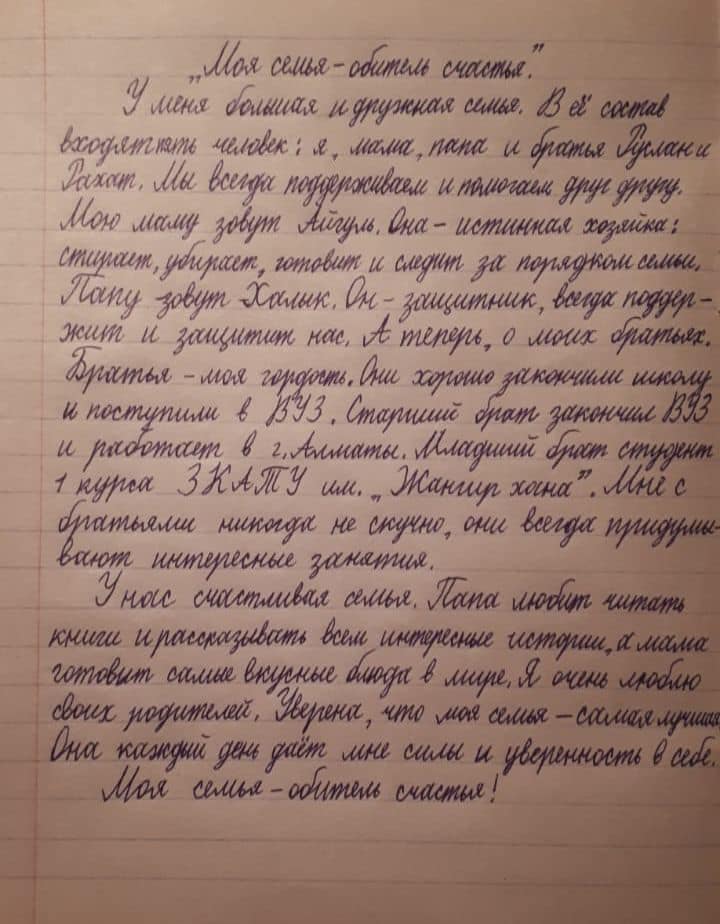 „Моя семья – обитель счастья".
У меня большая и дружная семья. В её состав
входят пять человек: я, мама, папа и братья Руслан и
Рахат. Мы всегда поддерживаем и помогаем друг другу.
Мою маму зовут Айгуль. Она – истинная хозяйка:
стирает, убирает, готовит и следит за порядком семьи.
Папу зовут Халык. Он – защитник, всегда поддер-
жит и защитит нас. А теперь, о моих братьях.
Братья – моя гордость. Они хорошо закончили школу
и поступили в ВУЗ. Старший брат закончил ВУЗ
и работает в г. Алматы. Младший брат студент
1 курса ЗКАТУ им. „Жангир хана". Мне с
братьями никогда не скучно, они всегда придумы-
вают интересные занятия.
У нас счастливая семья. Папа любит читать
книги и рассказывать всем интересные истории, а мама
готовит самые вкусные блюда в мире. Я очень люблю
своих родителей. Уверена, что моя семья – самая лучшая.
Она каждый день даёт мне силы и уверенность в себе.
Моя семья – обитель счастья!